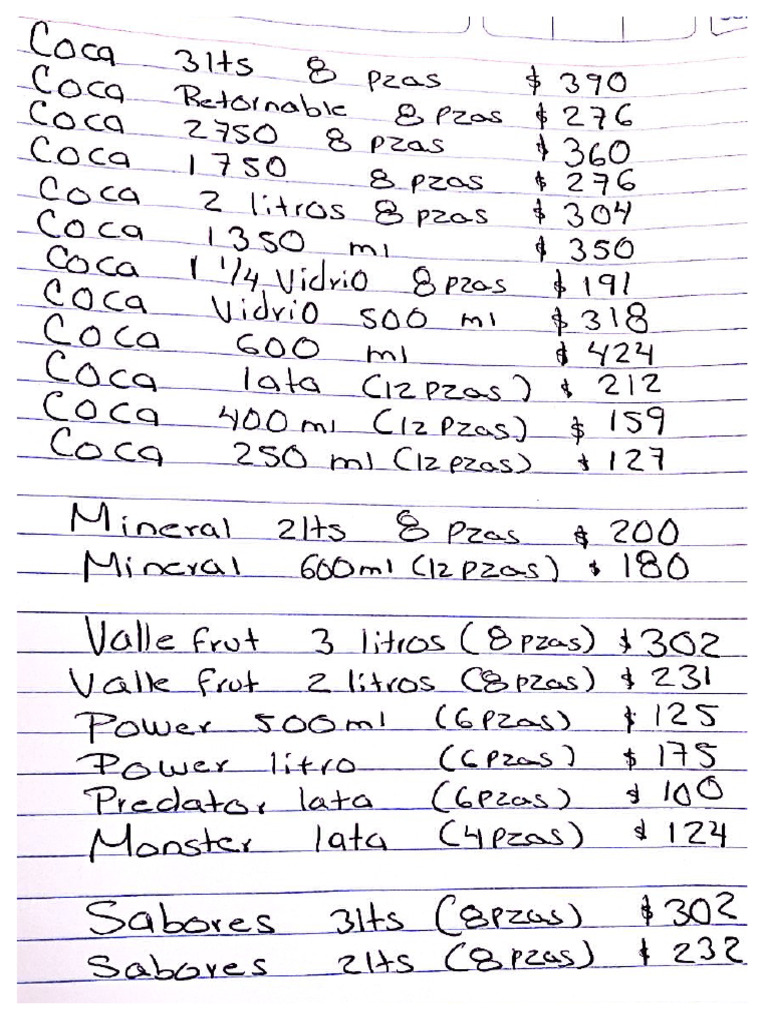 Coca 3lts 8 pzas $ 390
Coca Retornable 8 pzas $ 276
Coca 2750 8 pzas $ 360
Coca 1750 8 pzas $ 276
Coca 2 litros 8 pzas $ 304
Coca 1350 ml $ 350
Coca 1 1/4 Vidrio 8 pzas $ 191
Coca Vidrio 500 ml $ 318
Coca 600 ml $ 424
Coca lata (12 pzas) $ 212
Coca 400 ml (12 Pzas) $ 159
Coca 250 ml (12 pzas) $ 127
Mineral 2lts 8 Pzas $ 200
Mineral 600ml (12 pzas) $ 180
Valle frut 3 litros (8 pzas) $ 302
Valle frut 2 litros (8pzas) $ 231
Power 500ml (6 Pzas) $ 125
Power litro (6 pzas) $ 175
Predator lata (6Pzas) $ 100
Monster lata (4pzas) $ 124
Sabores 3lts (8pzas) $ 302
Sabores 2lts (8pzas) $ 232